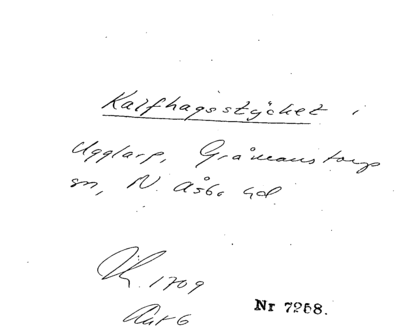 Kalfhagsstycket i
Ugglarp, Gråmanstorps
sn, N. Åsbo hd
1709
Akt 6
Nr 7268.